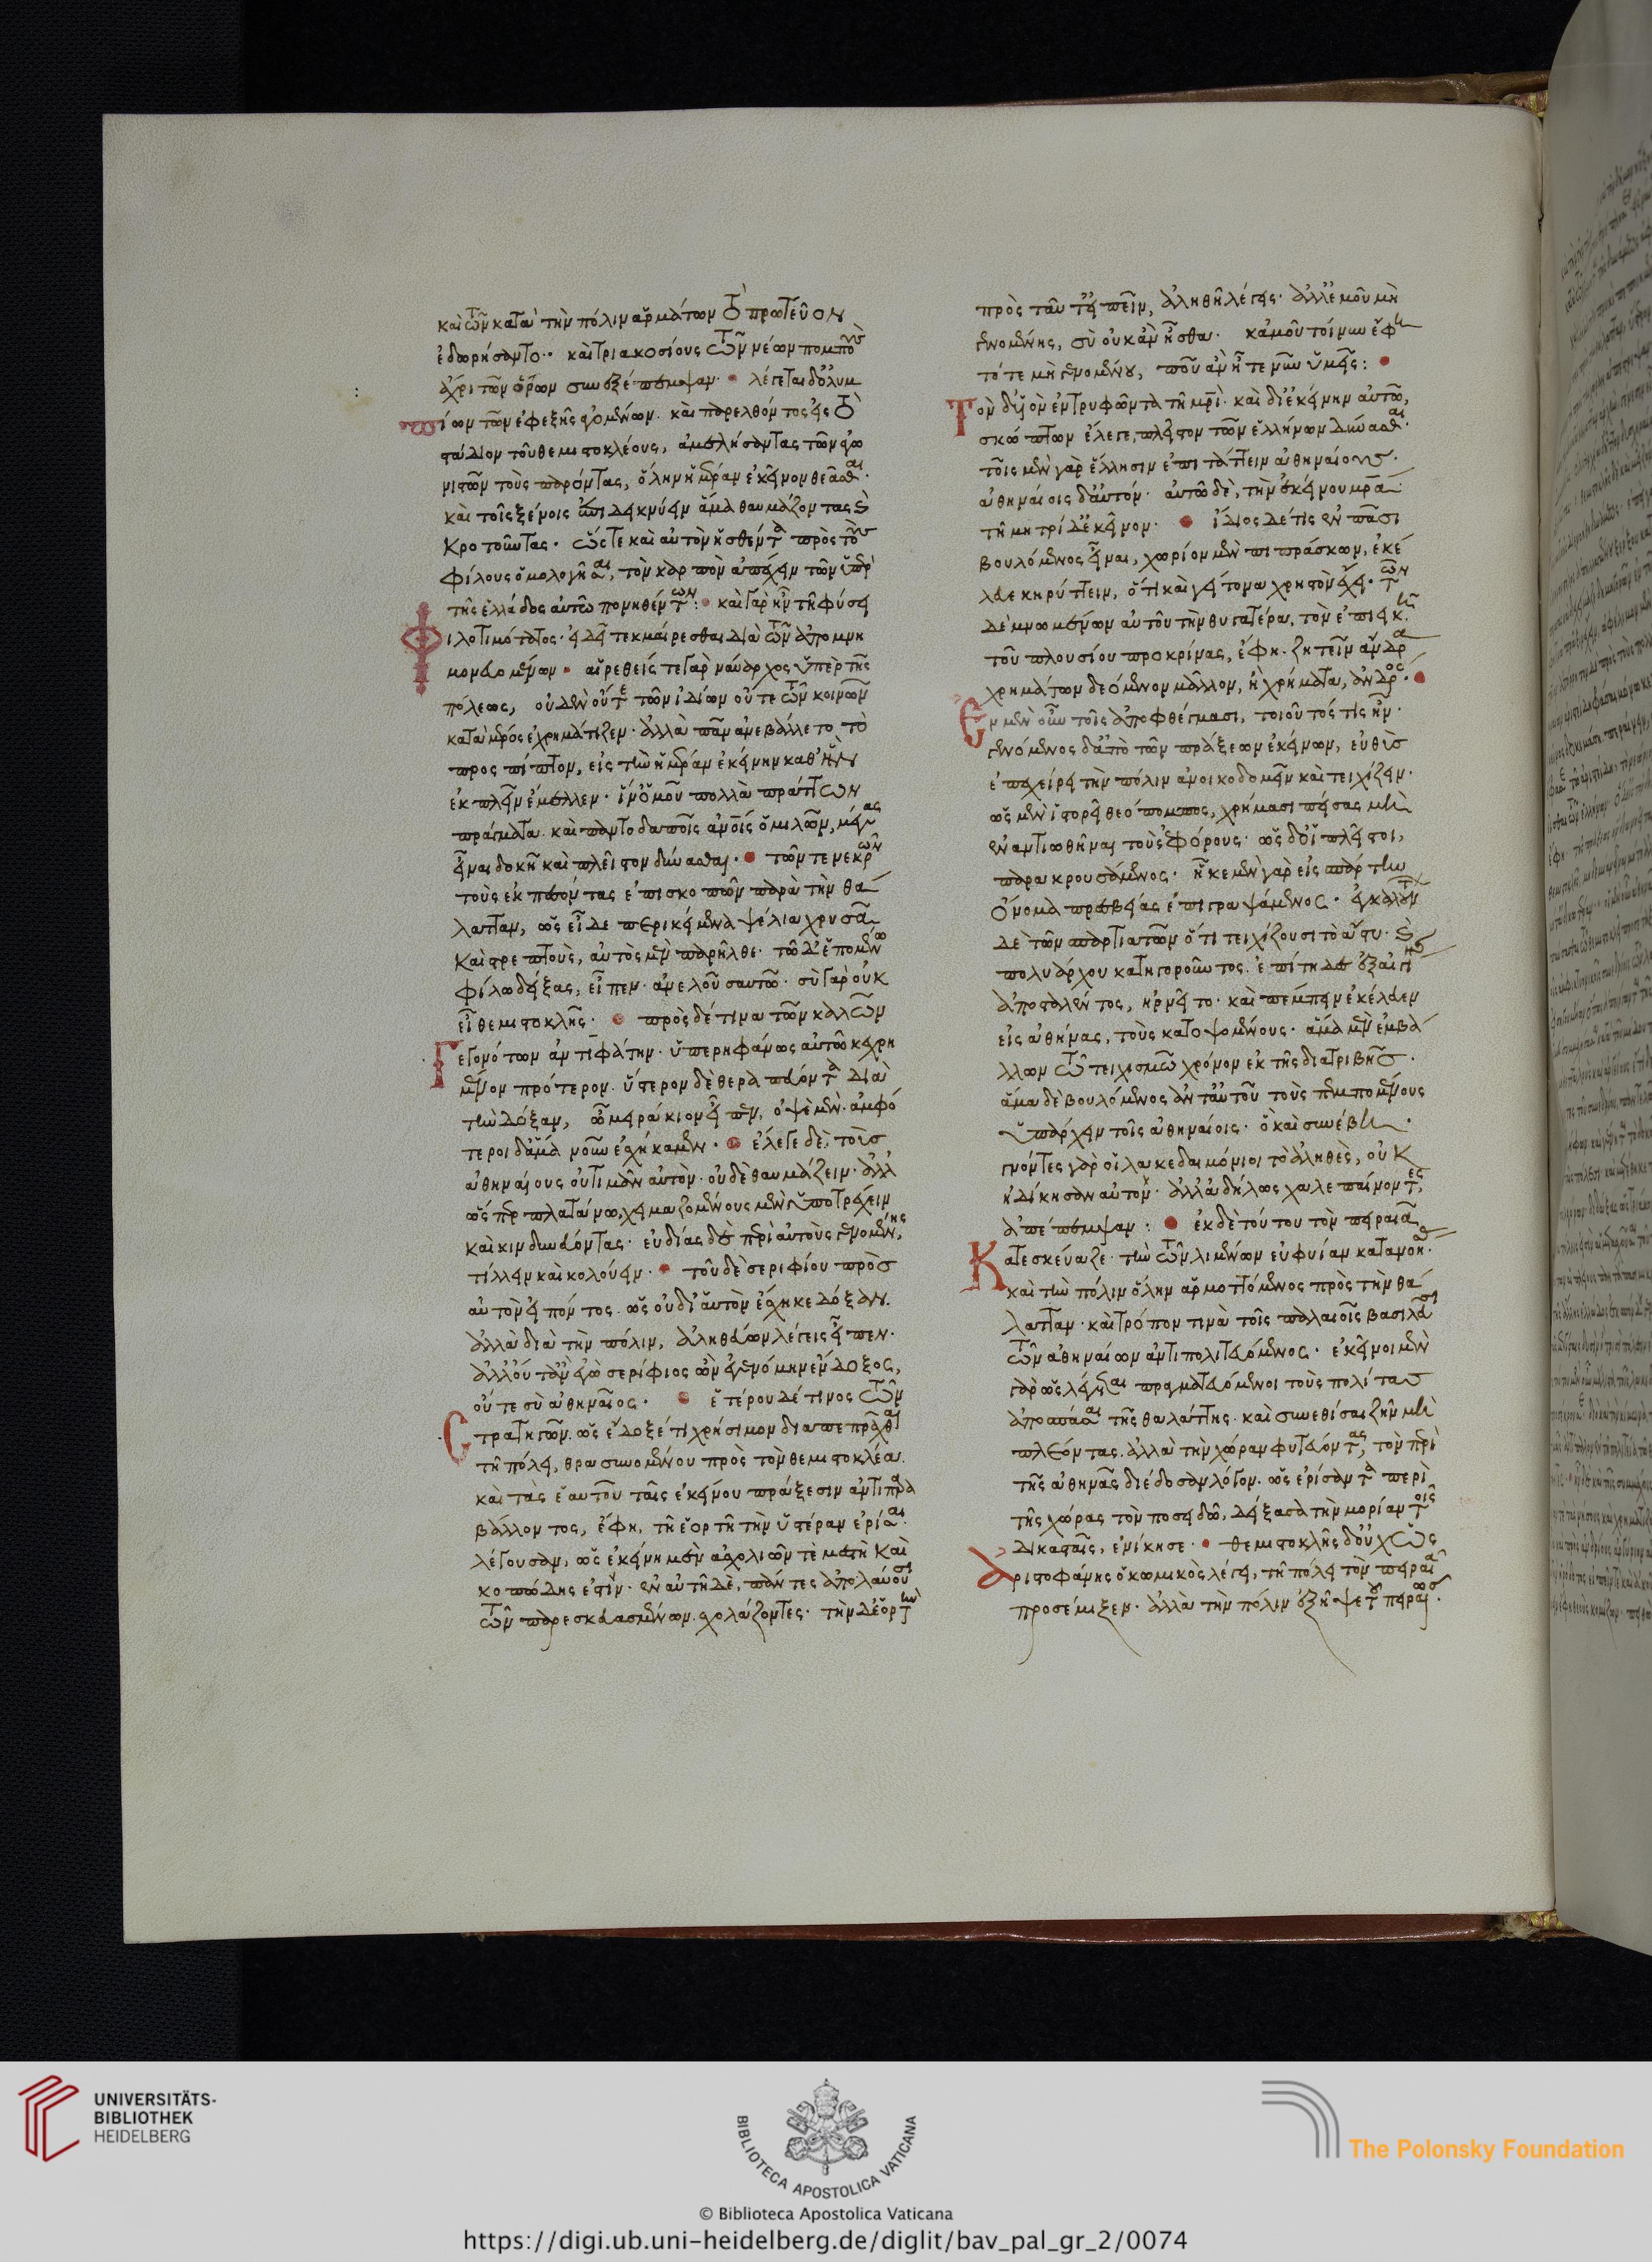 καὶ τῶν κατὰ τὴν πόλιν ἁρμάτων τὸ πρωτεῦον
ἐδωρήσαντο· καὶ τριακοσίους τῶν νέων πομποὺς
ἄχρι τῶν ὅρων συνεξέπεμψαν· λέγεται δ' ὀλυμ
πίων τῶν ἐφεξῆς ἀγομένων. καὶ παρελθόντος εἰς τὸ
στάδιον τοῦ θεμιστοκλέους, ἀμελήσαντας τῶν ἀγω
νιστῶν τοὺς παρόντας, ὅλην ἡμέραν ἐκεῖνον θεᾶσθαι·
καὶ τοῖς ξένοις ἐπιδεικνύειν ἅμα θαυμάζοντας καὶ
κροτοῦντας· ὥστε καὶ αὐτὸν ἡσθέντα πρὸς τοὺς
φίλους ὁμολογῆσαι, τὸν καρπὸν ἀπέχειν τῶν ὑπὲρ
τῆς ἑλλάδος αὐτῷ πονηθέντων: καὶ γὰρ ἦν τῇ φύσει
Φιλοτιμότατος· εἰ δεῖ τεκμαίρεσθαι διὰ τῶν ἀπομνη
μονευομένων· αἱρεθείς τε γὰρ ναύαρχος ὑπὲρ τῆς
πόλεως, οὐδὲν οὔτε τῶν ἰδίων οὔτε τῶν κοινῶν
κατὰ μέρος ἐχρημάτιζεν· ἀλλὰ πᾶν ἀνεβάλλετο τὸ
προσπίπτον, εἰς τὴν ἡμέραν ἐκείνην καθ' ἣν
ἐκπλεῖν ἔμελλεν· ἵν' ὁμοῦ πολλὰ πράττων
πράγματα. καὶ παντοδαποῖς ἀνοῖς ὁμιλῶν, μέγας
εἶναι δοκῇ καὶ πλεῖστον δύνασθαι· τῶν τε νεκρῶν
τοὺς ἐκπεσόντας ἐπισκοπῶν παρὰ τὴν θά
λατταν, ὡς εἶδε περικείμενα ψέλια χρυσᾶ
καὶ στρεπτοὺς, αὐτὸς μὲν παρῆλθε· τῷ δ' ἑπομένω
φίλω δείξας, εἶπεν· ἀνελοῦ σαυτῷ· σὺ γὰρ οὐκ
εἶ θεμιστοκλῆς· πρὸς δέ τινα τῶν καλῶν
Γεγονότων ἀντιφάτην· ὑπερηφάνως αὐτῷ κεχρη
μένον πρότερον. ὕστερον δὲ θεραπεύοντα διὰ
τὴν δόξαν, ὦ μειράκιον εἶπεν, ὀψὲ μὲν· ἀμφό
τεροι δ' ἅμα νοῦν ἐσχήκαμεν· ἔλεγε δὲ, τοὺς
ἀθηναίους οὐ τιμᾶν αὐτὸν· οὐδὲ θαυμάζειν· ἀλλ'
ὥσπερ πλατάνω, χειμαζομένους μὲν ὑποτρέχειν
καὶ κινδυνεύοντας· εὐδίας δὲ περὶ αὐτοὺς γενομένης,
τίλλειν καὶ κολούειν· τοῦ δὲ σεριφίου πρὸς
αὐτὸν εἰπόντος. ὡς οὐ δι' αὐτὸν ἔσχηκε δόξαν.
ἀλλὰ διὰ τὴν πόλιν, ἀληθῆ λέγεις εἶπεν·
ἀλλ' οὔτ' ἂν ἐγὼ σερίφιος ὢν ἐγενόμην ἔνδοξος,
οὔτε σὺ ἀθηναῖος· ἑτέρου δέ τινος τῶν
Στρατηγῶν. ὡς ἔδοξέ τι χρήσιμον διαπεπρᾶχθαι
τῇ πόλει, θρασυνομένου πρὸς τὸν θεμιστοκλέα.
καὶ τὰς ἑαυτοῦ ταῖς ἐκείνου πράξεσιν ἀντιπαρα
βάλλοντος, ἔφη, τῇ ἑορτῇ τὴν ὑστέραν ἐρίσαι·
λέγουσαν, ὡς ἐκείνη μὲν ἀσχολιῶν τὲ μεστὴ καὶ
κοπώδης ἐστὶν· ἐν αὐτῇ δὲ, πάντες ἀπολαύουσι
τῶν παρεσκευασμένων σχολάζοντες· τὴν δ' ἑορτὴν
πρὸς ταῦτ' εἰπεῖν, ἀληθῆ λέγεις· ἀλλ' ἐμοῦ μὴ
γενομένης, σὺ οὐκ ἂν ἦσθα· κἀμοῦ τοίνυν ἔφη
τότε μὴ γενομένου, ποῦ ἂν ἦτε νῦν ὑμεῖς:
Τὸν δ' υἱὸν ἐντρυφῶντα τῇ μρὶ· καὶ δι' ἐκείνην αὐτῷ,
σκώπτων ἔλεγε, πλεῖστον τῶν ἑλλήνων δύνασθαι·
τοῖς μὲν γὰρ ἕλλησιν ἐπιτάττειν ἀθηναίους·
ἀθηναίοις δ' αὐτόν· αὐτῷ δὲ, τὴν ἐκείνου μρα·
τῇ μητρὶ δ' ἐκεῖνον· ἴδιος δέ τις ἐν πᾶσι
βουλόμενος εἶναι, χωρίον μὲν πιπράσκων, ἐκέ
λευε κηρύττειν, ὅτι καὶ γείτονα χρηστὸν ἔχει· τῶν
δὲ μνωμένων αὐτοῦ τὴν θυγατέρα, τὸν ἐπιεικῆ
τοῦ πλουσίου προκρίνας, ἔφη· ζητεῖν ἄνδρα
χρημάτων δεόμενον μᾶλλον, ἢ χρήματα, ἀνδρός·
Ἐν μὲν οὖν τοῖς ἀποφθέγμασι, τοιοῦτός τις ἦν·
γενόμενος δ' ἀπὸ τῶν πράξεων ἐκείνων, εὐθὺς
ἐπεχείρει τὴν πόλιν ἀνοικοδομεῖν καὶ τειχίζειν·
ὡς μὲν ἱστορεῖ θεόπομπος, χρήμασι πείσας μὴ
ἐναντιωθῆναι τοὺς ἐφόρους· ὡς δ' οἱ πλεῖστοι,
παρακρουσάμενος· ἧκε μὲν γὰρ εἰς σπάρτην
ὄνομα πρεσβείας ἐπιγραψάμενος· ἐγκαλούντων
δὲ τῶν σπαρτιατῶν ὅτι τειχίζουσι τὸ ἄστυ· καὶ
πολυάρχου κατηγοροῦντος· ἐπίτηδες ἐξ αἰγίνης
ἀποσταλέντος, ἠρνεῖτο· καὶ πέμπειν ἐκέλευεν
εἰς ἀθήνας, τοὺς κατοψομένους· ἅμα μὲν ἐμβά
λλων τῷ τειχισμῷ χρόνον ἐκ τῆς διατριβῆς·
ἅμα δὲ βουλόμενος ἀντ' αὐτοῦ τοὺς πεμπομένους
ὑπάρχειν τοῖς ἀθηναίοις· ὃ καὶ συνέβη·
γνόντες γὰρ οἱ λακεδαιμόνιοι τὸ ἀληθὲς, οὐκ
ἠδίκησαν αὐτὸν· ἀλλ' ἀδήλως χαλεπαίνοντες,
ἀπέπεμψαν: ἐκ δὲ τούτου τὸν πειραιᾶ
Κατεσκεύαζε· τὴν τῶν λιμένων εὐφυΐαν κατανοήσας·
καὶ τὴν πόλιν ὅλην ἁρμοττόμενος πρὸς τὴν θά
λατταν· καὶ τρόπον τινὰ τοῖς παλαιοῖς βασιλεῦσι
τῶν ἀθηναίων ἀντιπολιτευόμενος· ἐκεῖνοι μὲν
γὰρ ὡς λέγεται πραγματευόμενοι τοὺς πολίτας
ἀποσπάσαι τῆς θαλάττης· καὶ συνεθίσαι ζῆν μὴ
πλέοντας. ἀλλὰ τὴν χώραν φυτεύοντας, τὸν περὶ
τῆς ἀθηνᾶς διέδοσαν λόγον. ὡς ἐρίσαντα περὶ
τῆς χώρας τὸν ποσειδῶ, δείξασα τὴν μορίαν τοῖς
δικασταῖς, ἐνίκησε· θεμιστοκλῆς δ' οὐχ ὡς
Ἀριστοφάνης ὁ κωμικὸς λέγει, τῇ πόλει τὸν πειραιᾶ
προσέμιξεν· ἀλλὰ τὴν πόλιν ἐξῆψε τοῦ πειραιῶς·
UNIVERSITÄTS-
BIBLIOTHEK
HEIDELBERG
BIBLIOTECA APOSTOLICA VATICANA
The Polonsky Foundation
© Biblioteca Apostolica Vaticana
https://digi.ub.uni-heidelberg.de/diglit/bav_pal_gr_2/0074